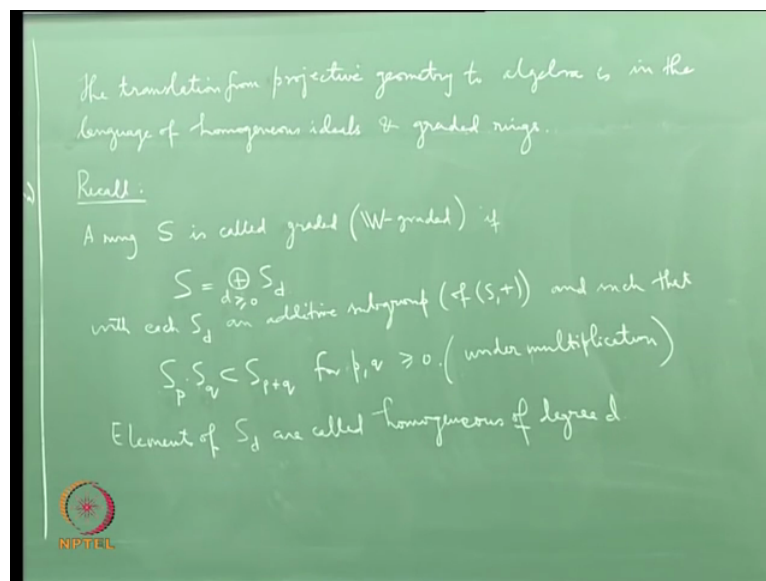 The translation from projective geometry to algebra is in the
language of homogeneous ideals & graded rings.
Recall:
A ring S is called graded (W-graded) if
S = ⊕_{d≥0} S_d
with each S_d an additive subgroup (of (S,+)) and such that
S_p·S_q ⊂ S_{p+q} for p, q ≥ 0. (under multiplication)
Element of S_d are called homogeneous of degree d
NPTEL